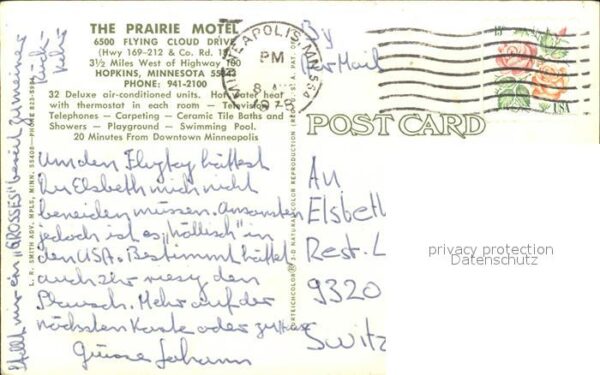 THE PRAIRIE MOTEL
6500 FLYING CLOUD DRIVE
(Hwy 169-212 & Co. Rd. 1
3½ Miles West of Highway 100
HOPKINS, MINNESOTA 55343
PHONE: 941-2100
32 Deluxe air-conditioned units. Hot water heat
with thermostat in each room — Television
Telephones — Carpeting — Ceramic Tile Baths and
Showers — Playground — Swimming Pool.
20 Minutes From Downtown Minneapolis
MINNEAPOLIS, MN
PM
1978
By
Air Mail
15c
USA
POST CARD
um den Flugtag hättest
Du Elsbeth mich nicht
beneiden müssen. Ansonsten
jedoch ist es "höllisch" in
den USA. Bestimmt hättet
auch Ihr riesig den
Plausch. Mehr auf der
nächsten Karte oder zuHause
Grüsse Johann
Stellt nur ein "GROSSES" bereit zu meiner
Rück-
kehr
An
Elsbeth
Rest. L
9320
Switz
L. R. SMITH ADV. MPLS, MINN. 55408—PHONE 823-
3-D NATURALCOLOR REPRODUCTION
privacy protection
Datenschutz